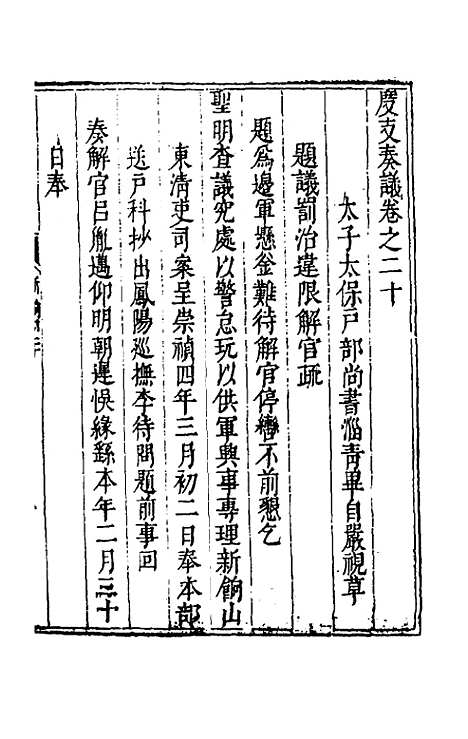 度支奏議卷之二十
太子太保戶部尚書淄青畢自嚴視草
題議罰治違限解官疏
題爲邊軍懸釡難待解官停轡不前懇乞
聖明查議究處以警怠玩以供軍興事專理新餉山
東清吏司案呈崇禎四年三月初二日奉本部
送戶科抄出鳳陽巡撫李待問題前事回
奏解官呂胤遇仰明朝遲悞緣繇本年二月三十
日奉